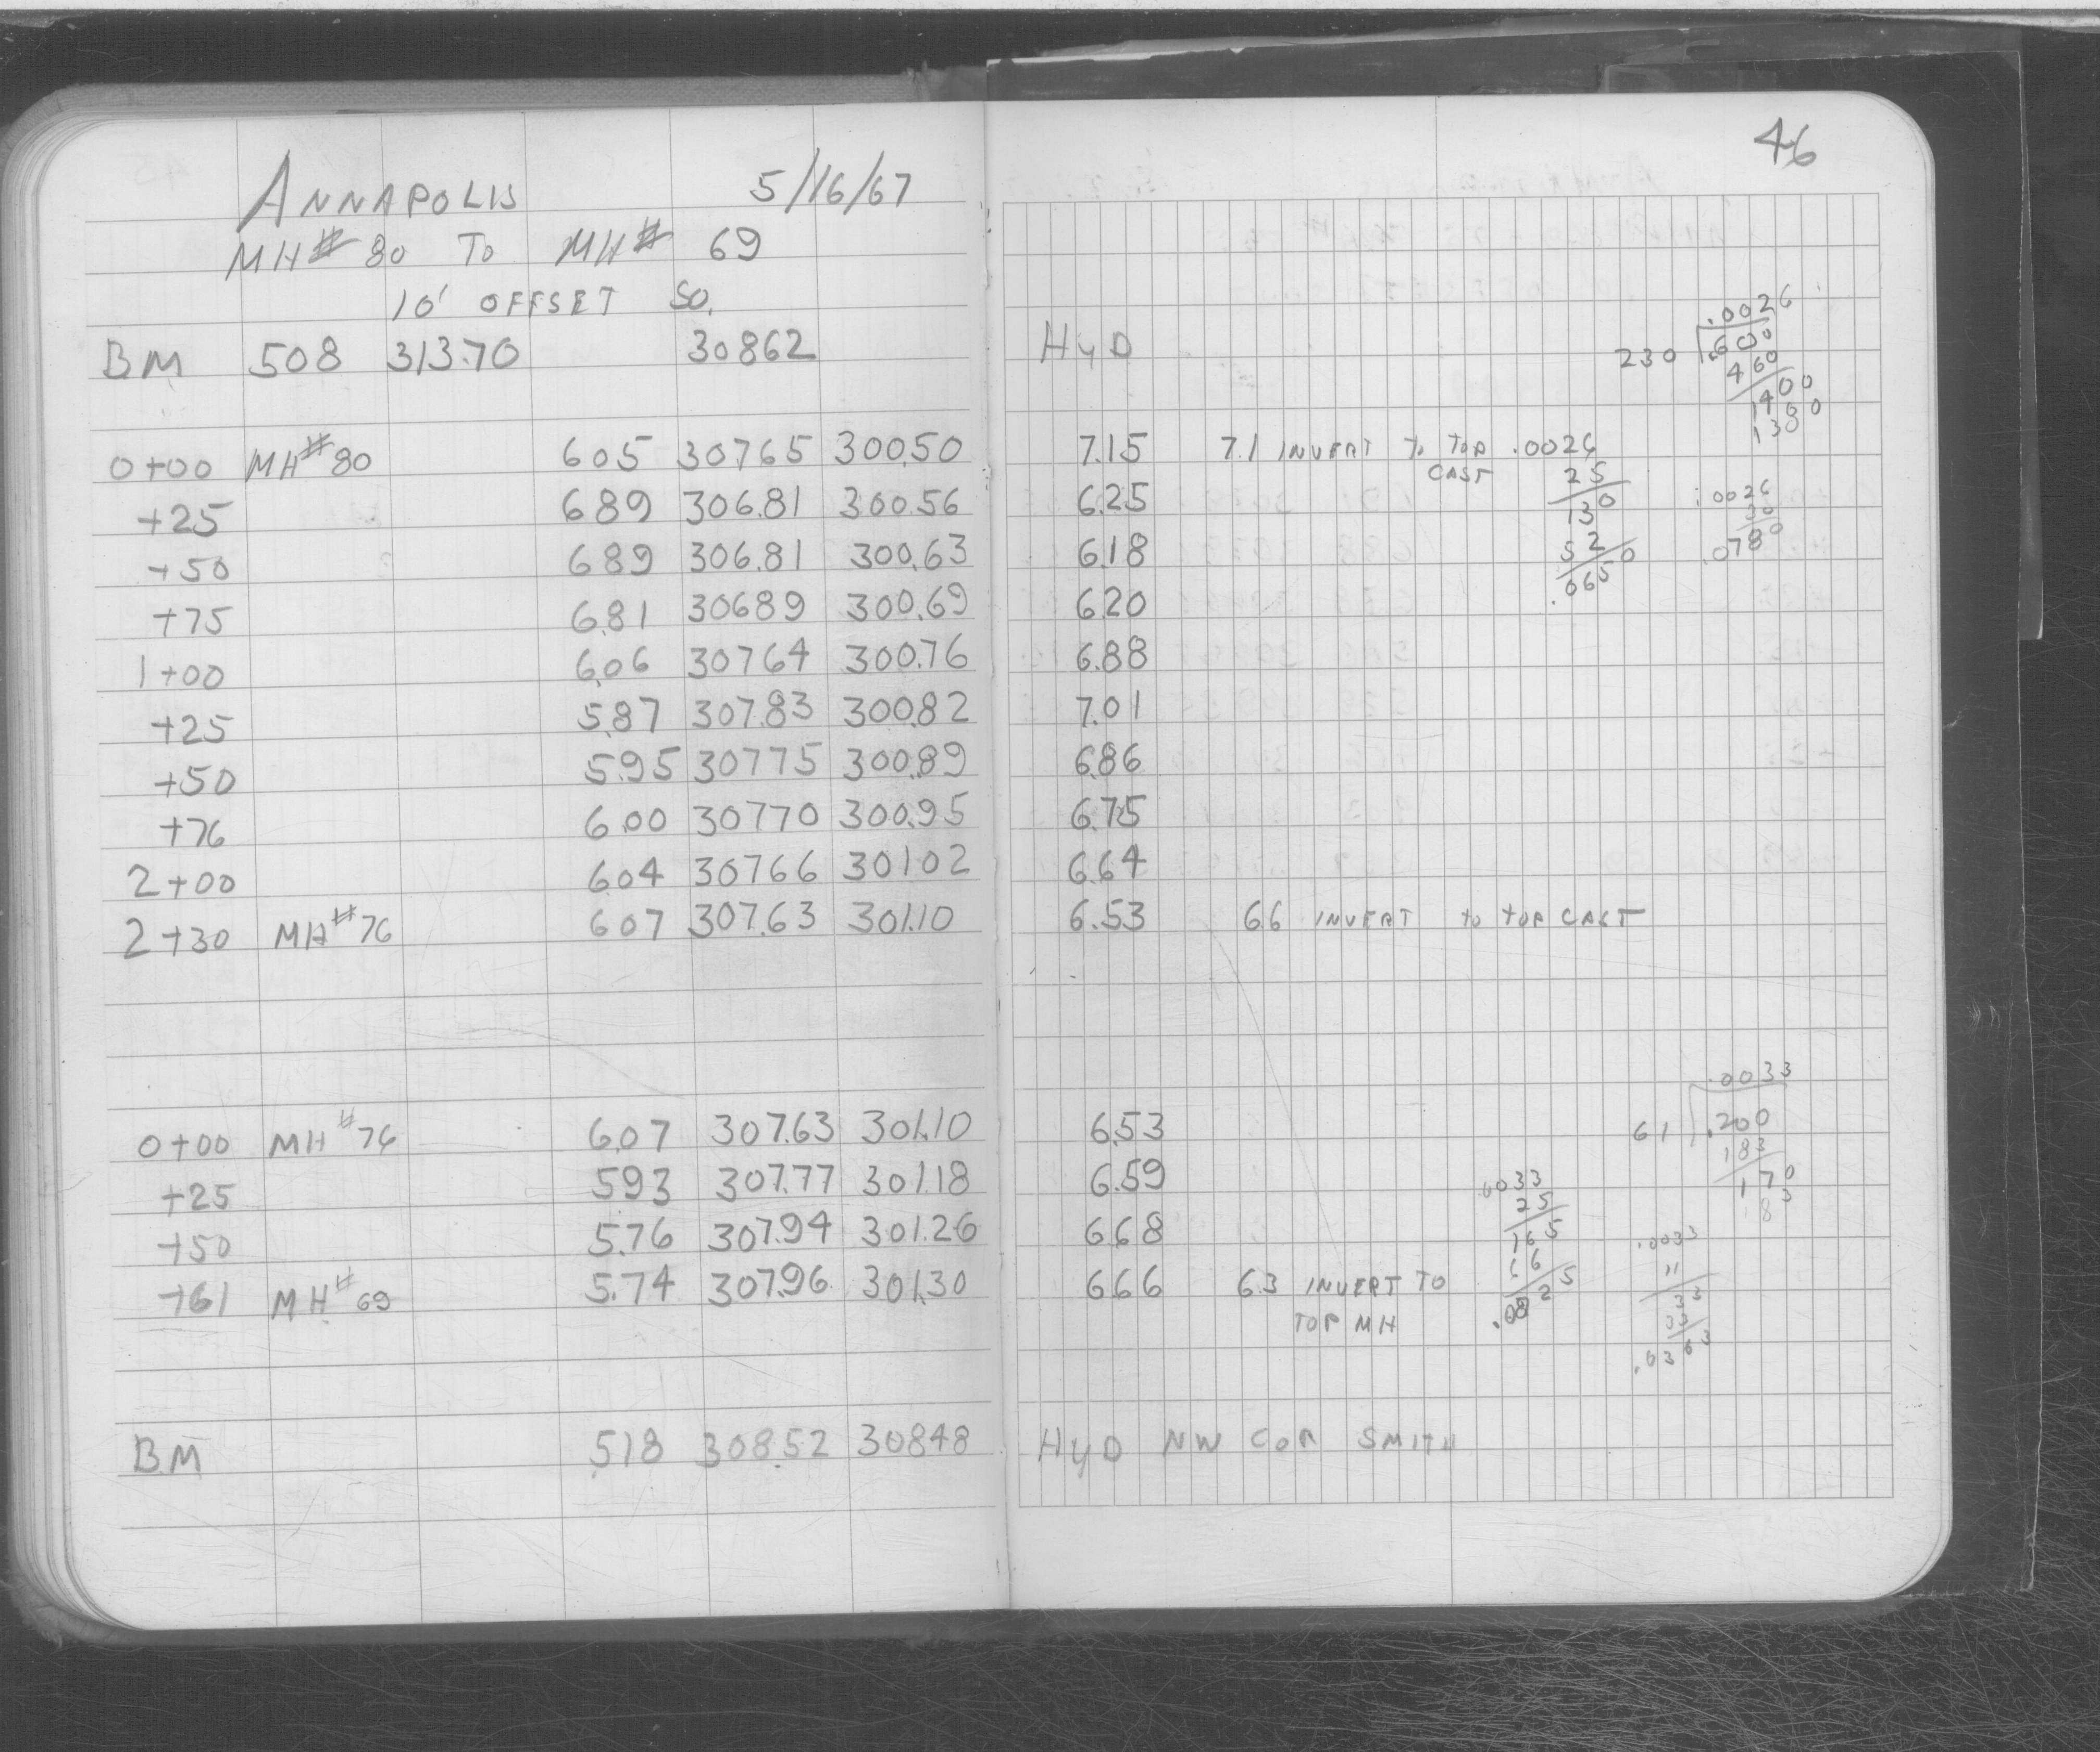 46
ANNAPOLIS 5/16/67
MH# 80 TO MH# 69
10' OFFSET SO.
BM 508 313.70 30862 HYD
0+00 MH#80 605 30765 300.50 7.15 7.1 INVERT To TOP CAST
+25 689 306.81 300.56 6.25
+50 689 306.81 300.63 618
+75 6.81 30689 300.69 6.20
1+00 6.06 30764 300.76 6.88
+25 5.87 307.83 300.82 7.01
+50 5.95 30775 300.89 6.86
+76 6.00 30770 300.95 6.75
2+00 6.04 30766 30102 6.64
2+30 MH#76 607 307.63 301.10 6.53 66 INVERT to toP CAST
0+00 MH#76 6.07 307.63 301.10 6.53
+25 593 307.77 301.18 6.59
+50 5.76 307.94 301.26 668
+61 MH#69 5.74 307.96 301.30 666 6.3 INVERT TO
TOP MH
BM 518 308.52 30848 HYD NW COR SMITH
.0026
230 .600
460
1400
1380
.0026
25
130
52
.0650
.0026
30
.0780
.0033
61 .200
183
170
183
.0033
25
165
66
.0825
.0033
11
33
33
.0363